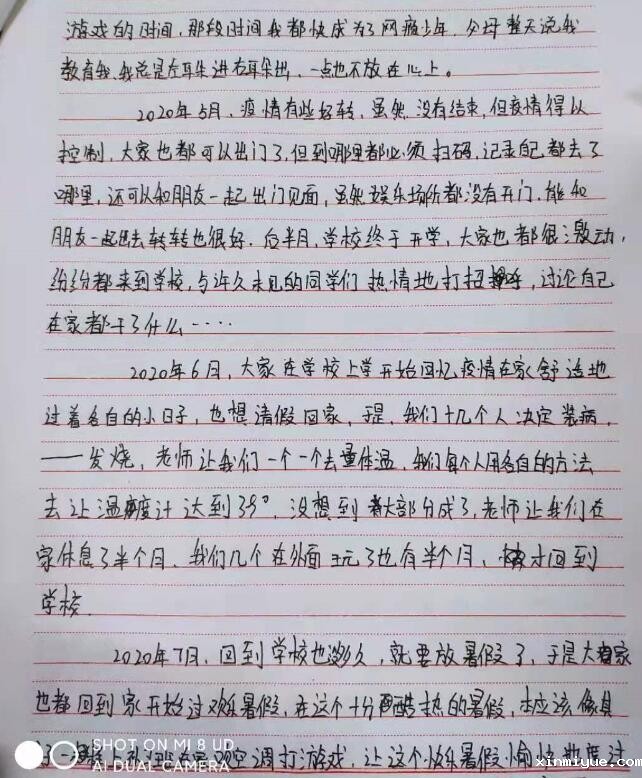 游戏的时间，那段时间我都快成为了网瘾少年，父母整天说我
教育我，我总是左耳朵进右耳朵出，一点也不放在心上。
2020年5月，疫情有些好转，虽然没有结束，但疫情得以
控制，大家也都可以出门了，但到哪里都必须扫码，记录自己都去了
哪里，还可以和朋友一起出门见面，虽然娱乐场所都没有开门，能和
朋友一起出去转转也很好，后半月，学校终于开学，大家也都很激动，
纷纷都来到学校，与许久未见的同学们热情地打招呼，讨论自己
在家都干了什么····
2020年6月，大家在学校上学开始回忆疫情在家舒适地
过着各自的小日子，也想请假回家，于是，我们十几个人决定装病，
——发烧，老师让我们一个一个去量体温，我们每个人用各自的方法
去让温度计达到39°，没想到大部分成了，老师让我们在
家休息了半个月，我们几个在外面玩了也有半个月，才回到
学校．
2020年7月，回到学校也没多久，就要放暑假了，于是大家
也都回到家开始过欢乐暑假，在这个十分酷热的暑假，本应该
空调打游戏，让这个快乐暑假愉快地度过
SHOT ON MI 8 UD
AI DUAL CAMERA
xinmiyue.com